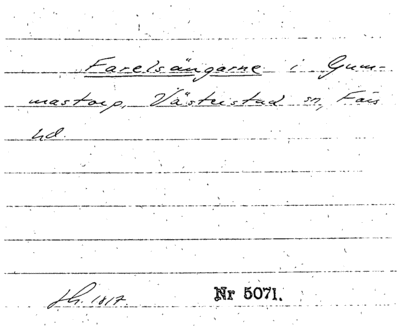 Farelsängarne i Gum-
mastorp, Västerstad sn, Färs
hd.
1817 Nr 5071.